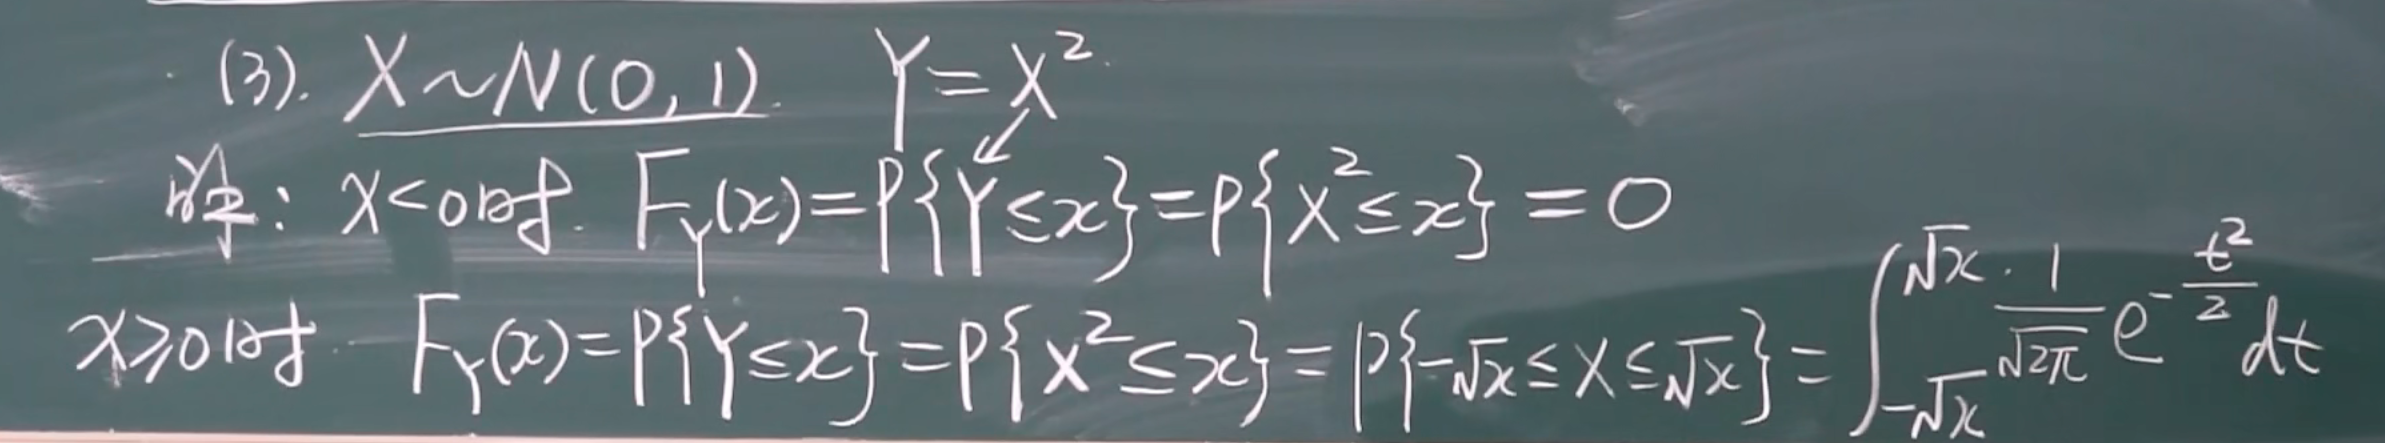 (3). X~N(0,1). Y=X²
解: x<0时. F_Y(x)=P{Y≤x}=P{X²≤x}=0
x≥0时 F_Y(x)=P{Y≤x}=P{X²≤x}=P{-√x≤X≤√x}=∫_{-√x}^{√x} \frac{1}{√2π} e^{-\frac{t²}{2}} dt